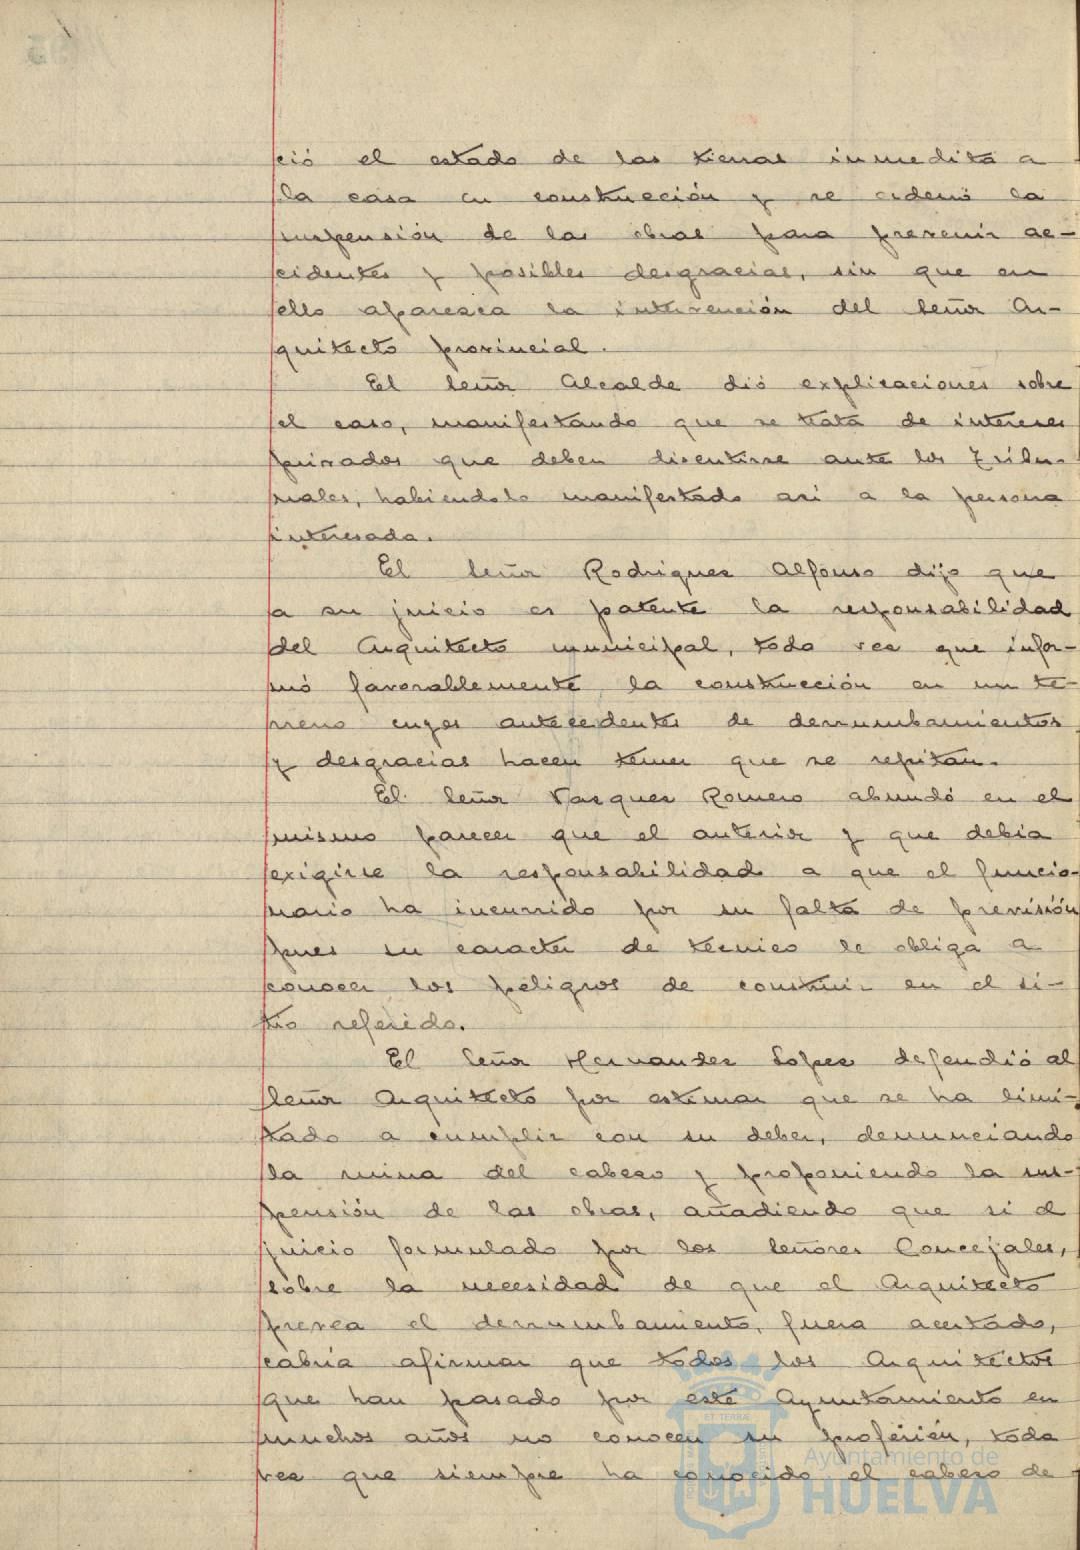 ció el estado de las tierras inmedita a
la casa en construcción y se ordenó la
suspensión de las obras para prevenir ac-
cidentes y posibles desgracias, sin que en
ello aparezca la intervención del señor Ar-
quitecto provincial.
El señor Alcalde dió explicaciones sobre
el caso, manifestando que se trata de intereses
privados que deben discutirse ante los Tribu-
nales, habiendolo manifestado asi a la persona
interesada.
El señor Rodriguez Alfonso dijo que
a su juicio es patente la responsabilidad
del Arquitecto municipal, toda vez que infor-
mó favorablemente la construcción en un te-
rreno cuyos antecedentes de derrumbamientos
y desgracias hacen temer que se repitan.
El señor Vazquez Romero abundó en el
mismo parecer que el anterior y que debia
exigirse la responsabilidad a que el funcio-
nario ha incurrido por su falta de previsión
pues su caracter de tecnico le obliga a
conocer los peligros de construir en el si-
tio referido.
El señor Hernandez Lopez defendió al
señor Arquitecto por estimar que se ha limi-
tado a cumplir con su deber, denunciando
la ruina del cabezo y proponiendo la sus-
pensión de las obras, añadiendo que si el
juicio formulado por los señores Concejales,
sobre la necesidad de que el Arquitecto
prevea el derrumbamiento, fuera acertado,
cabria afirmar que todos los Arquitectos
que han pasado por este Ayuntamiento en
muchos años no conocen su profesión, toda
vez que siempre ha conocido el cabezo de
ET TERRÆ
Ayuntamiento de
HUELVA